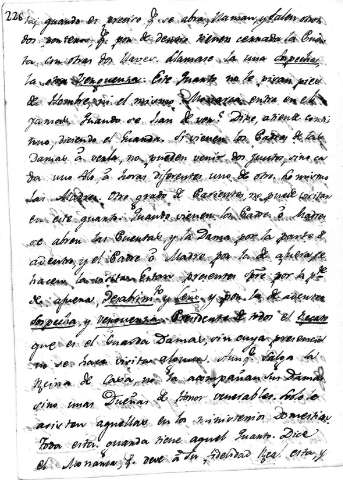 226
quando es preciso q.e se abra, llaman, y salen otros
dos porteros q.e por de dentro tienen cerrada la Puer
ta con otras dos llaves. Llamase la una Sospecha,
la otra Verguenza. Este Quarto no lo pisan pies
de Hombre, ni el mismo Monarca entra en el
jamas. Quando se han de
nuo, diciendo el Guarda. Si vienen los Padres de las
Damas à verla, no pueden venir dos juntos, sino ca
da uno solo, à horas diferentes uno de otro. Lo mismo
las Madres. Otro grado de Parientes no puede visitar
en este quarto. Quando vienen los Padres ò Madres
se abren las Puertas, y la Dama por la parte de
adentro, y el Padre ò Madre por la de afuera
hacen la visita. Estan presentes por la p.te
de afuera, y por la de adentro
Sospecha, y Verguenza. Presidente de todos el Recato
que es el Guarda Damas, sin cuya presencia
no se hace visita alguna. Aunq.e salga la
Reina de Casa, no la acompañan sus Damas
sino unas Dueñas de honor venerables. Solo
asisten aquellas en los ministerios domesticos.
Toda esta guarda tiene aquel Quarto. Dice
el Monarca q.e deve à su fidelidad esta, y